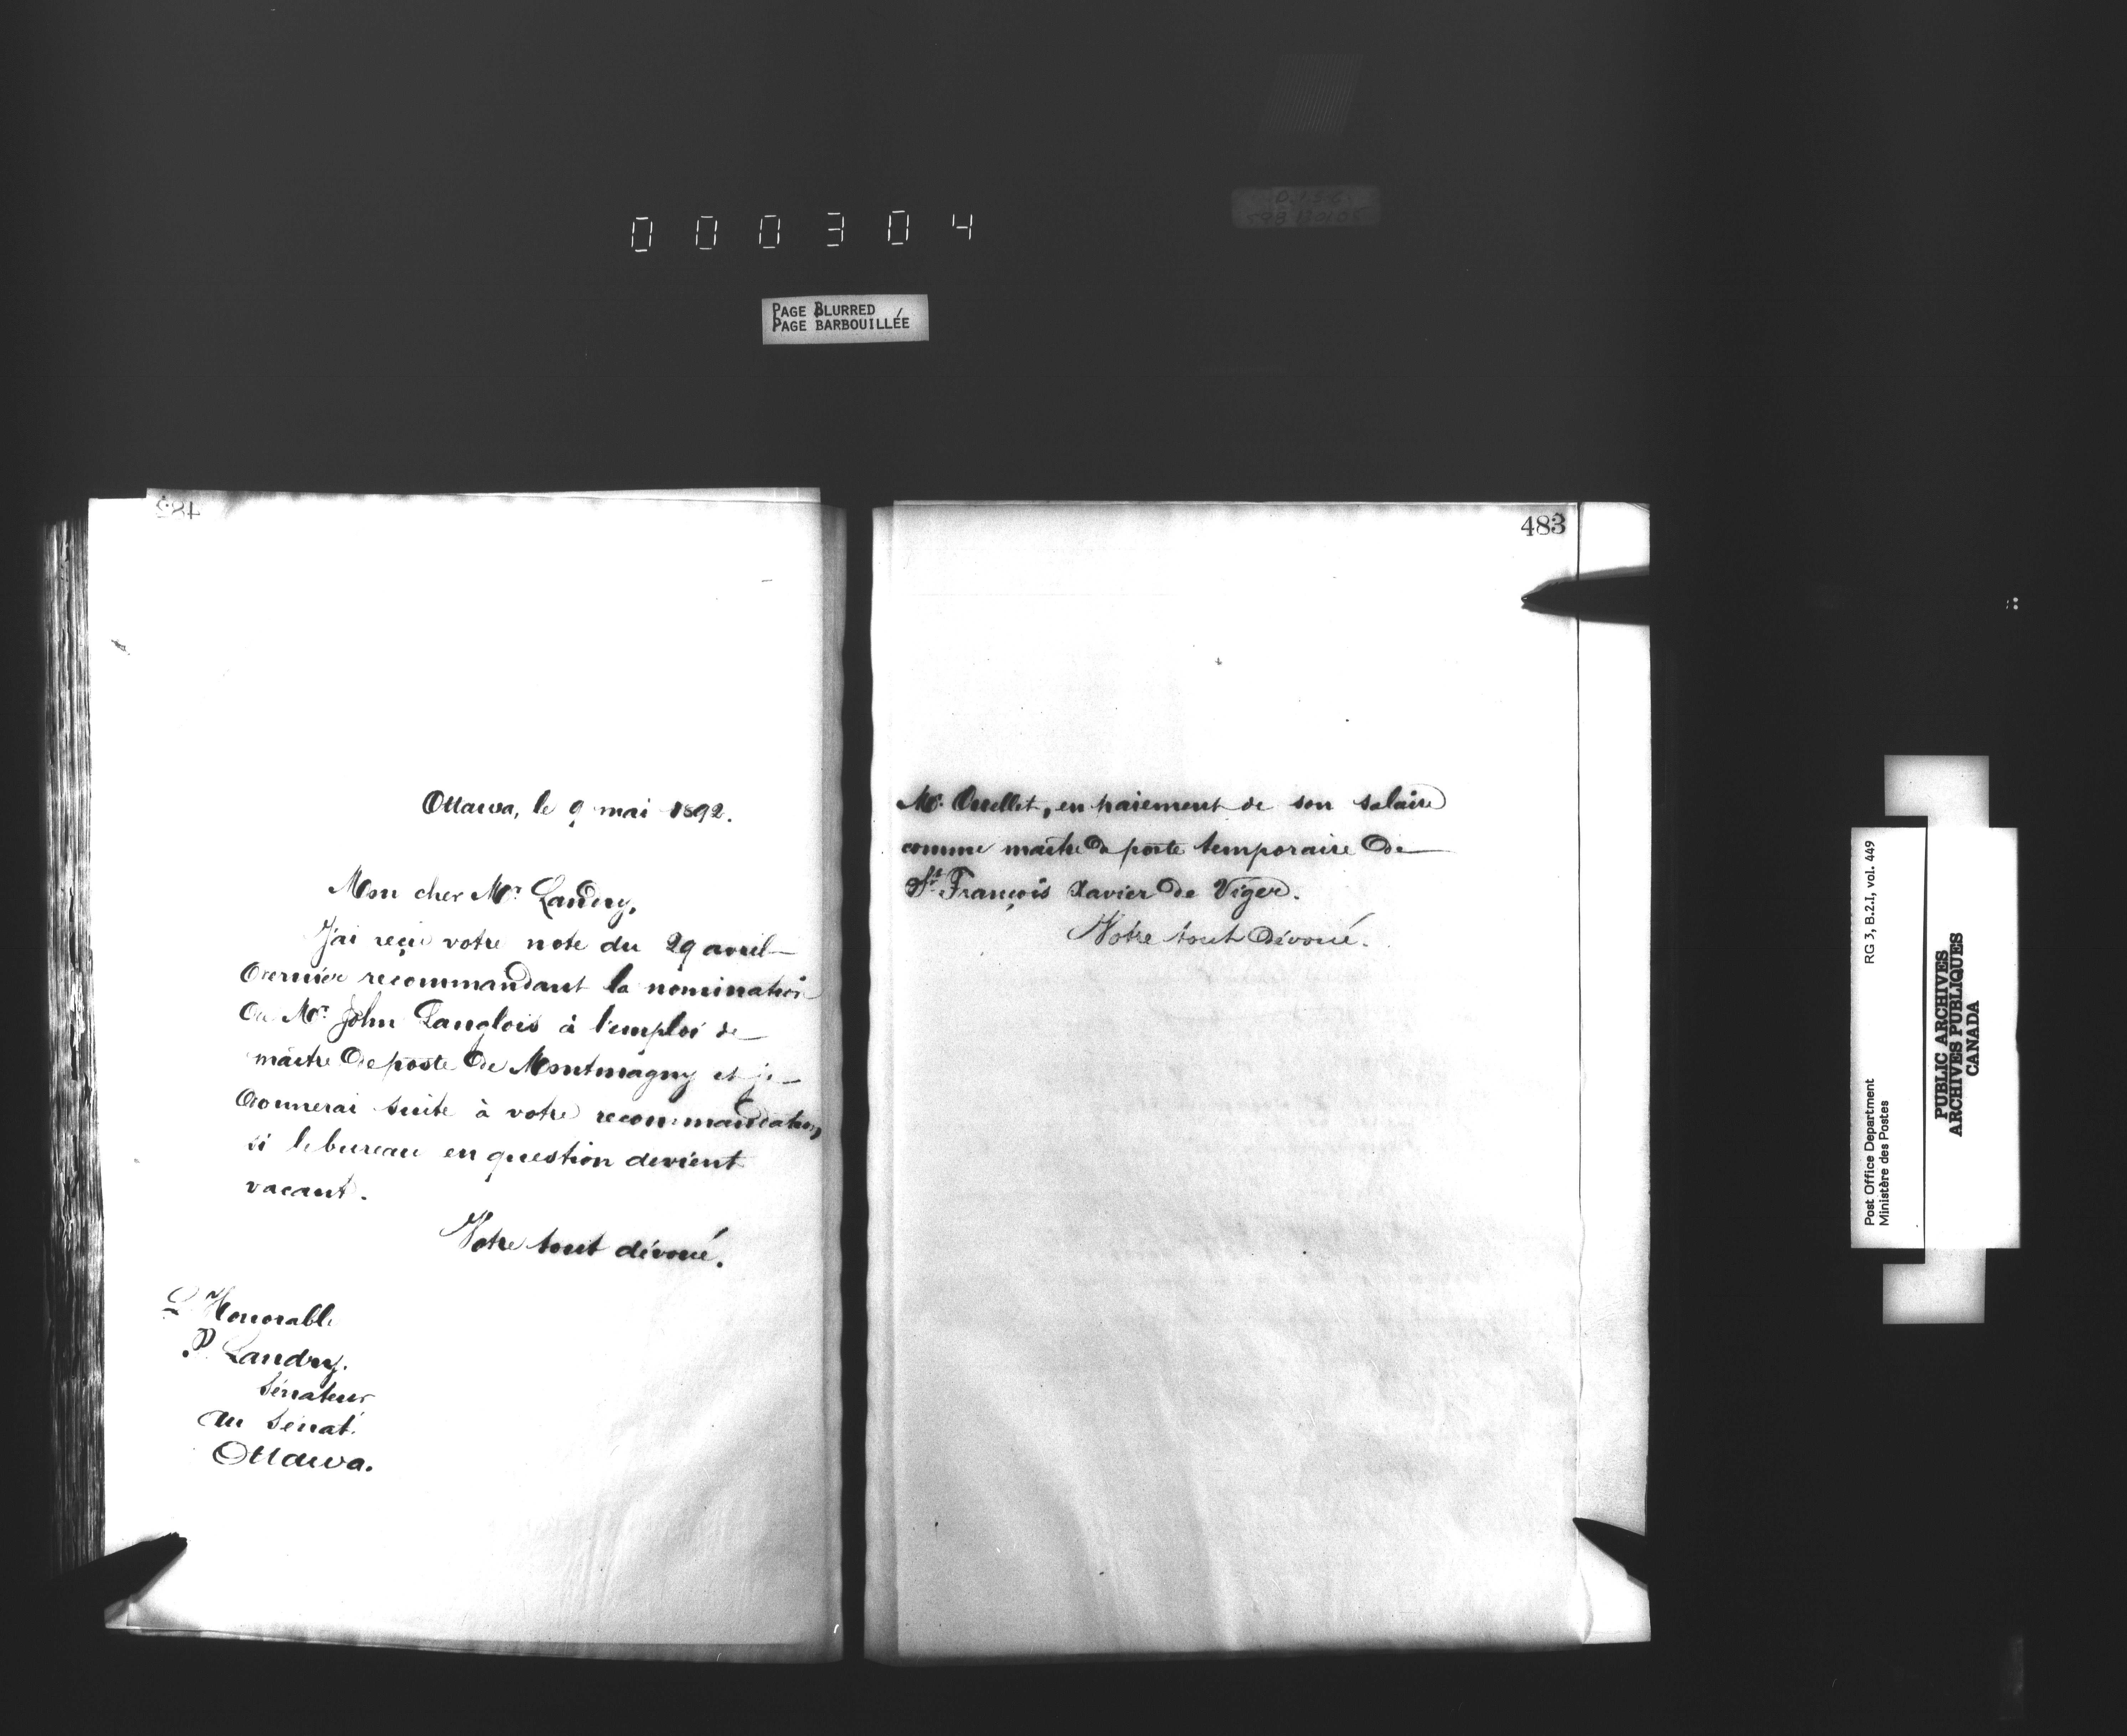 0 0 0 3 0 4
PAGE BLURRED
PAGE BARBOUILLÉE
Ottawa, le 9 mai 1892.
Mon cher Mr Landry,
J'ai reçu votre note du 29 avril
dernier recommandant la nomination
de Mr John Langlois à l'emploi de
maître de poste de Montmagny et je
donnerai suite à votre recommandation,
si le bureau en question devient
vacant.
Votre tout dévoué.
L'Honorable
P. Landry.
Sénateur
Au Sénat.
Ottawa.
483
Mr. Ouellet, en paiement de son salaire
comme maître de poste temporaire de
St François Xavier de Viger.
Votre tout dévoué.
Post Office Department
Ministère des Postes
RG 3, B.2.I, vol. 449
PUBLIC ARCHIVES
ARCHIVES PUBLIQUES
CANADA